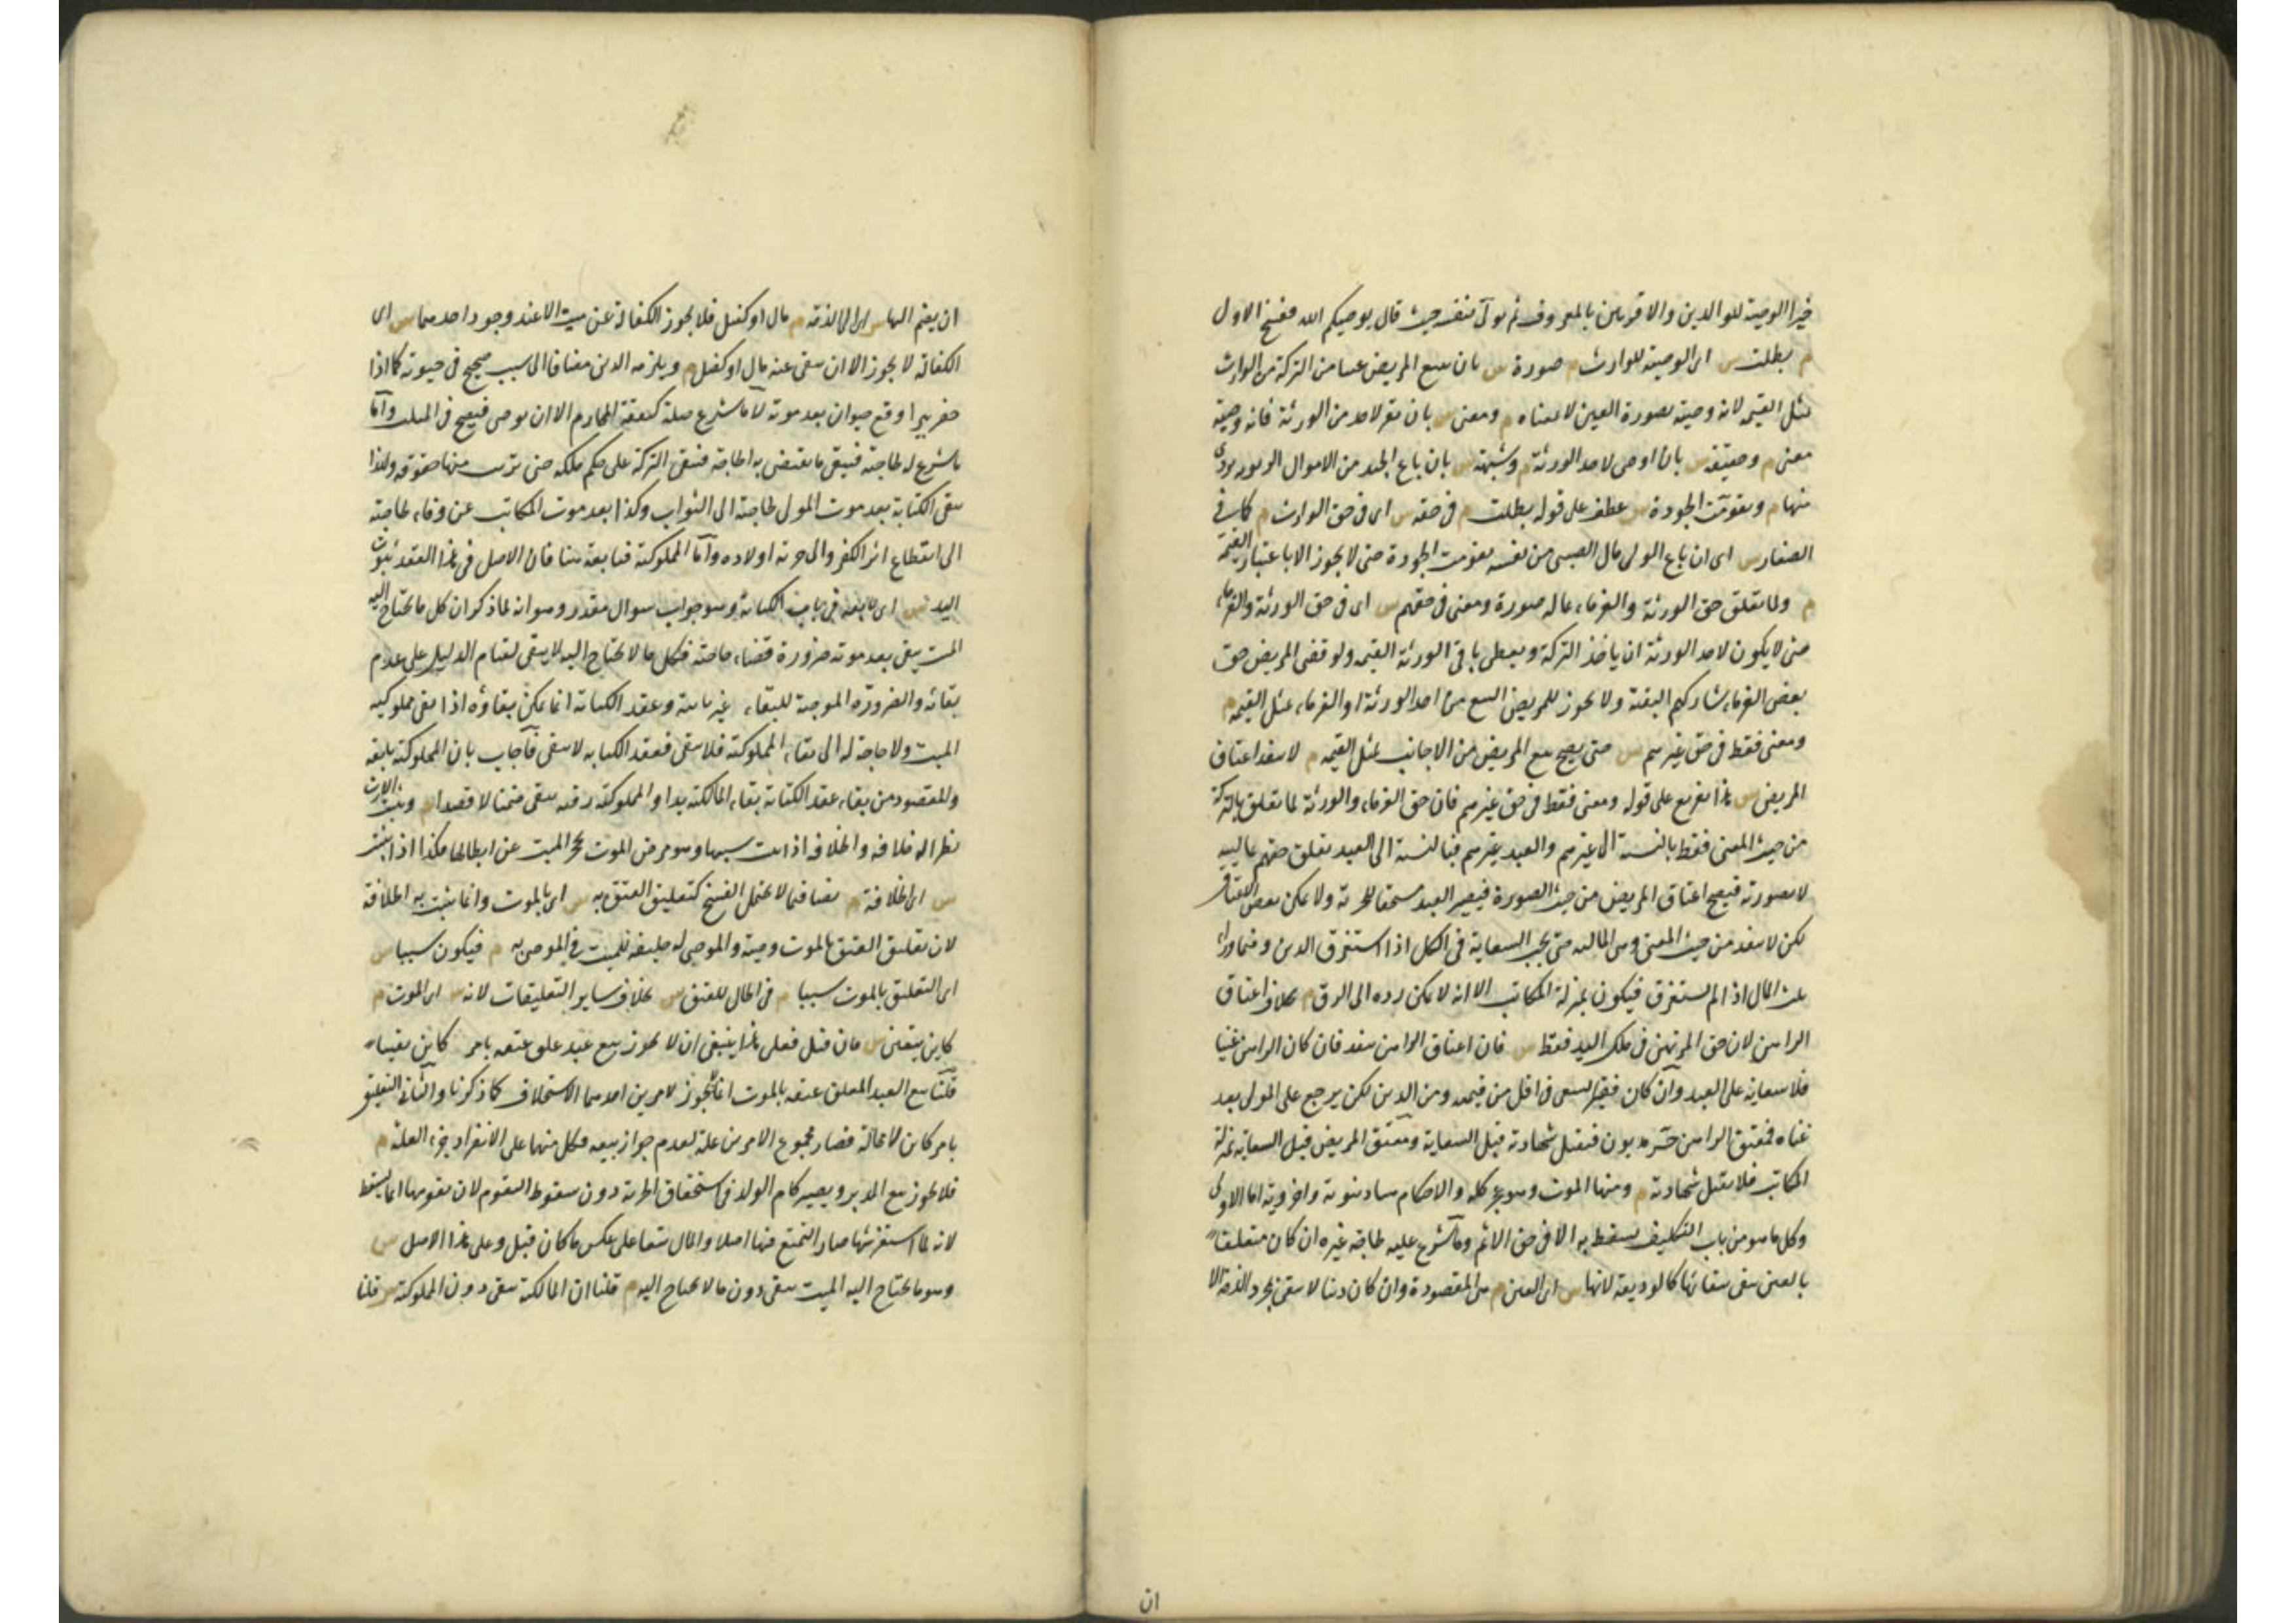 خيرا الوصية للوالدين والاقربين بالمعروف ثم تولى بنفسه حيث قال يوصيكم الله فنسخ الاول
م بطلت س اى الوصية للوارث م صورة س بان يبيع المريض عينا من التركة من الوارث
بمثل القيمة لانه وصية بصورة العين لا بمعناه م ومعنى س بان يقر لاحد من الورثة فانه وصية
معنى م وحقيقة س بان اوصى لاحد الورثة م وشبهة س بان باع الجيد من الاموال الربوية بردى
منها م وتقومت الجودة س عطف على قوله بطلت م فى حقه س اى فى حق الوارث م كما فى
الصغار س اى ان باع الولى مال الصبى من نفسه تقومت الجودة حتى لا يجوز الا باعتبار القيمة
م ولما تعلق حق الورثة والغرماء بماله صورة ومعنى فى حقهم س اى فى حق الورثة والغرماء
حتى لا يكون لاحد الورثة ان ياخذ التركة ويعطى باقى الورثة القيمة ولو قضى المريض حق
بعض الغرماء شاركهم البقية ولا يجوز للمريض البيع من احد الورثة او الغرماء بمثل القيمة م
ومعنى فقط فى حق غيرهم س حتى يصح بيع المريض من الاجانب بمثل القيمة م لا ينفذ اعتاق
المريض س هذا تفريع على قوله ومعنى فقط فى حق غيرهم فان حق الغرماء والورثة لما تعلق بالتركة
من حيث المعنى فقط بالنسبة الى غيرهم والعبد غيرهم فبالنسبة الى العبد تعلق حقهم بماليته
لا بصورته فيصح اعتاق المريض من حيث الصورة فيصير العبد مستحقا للحرية ولا يمكن نقض الاعتاق
لكن لا ينفذ من حيث المعنى وهى المالية حتى يجب السعاية فى الكل اذا استغرق الدين وفيما وراء
ثلث المال اذا لم يستغرق فيكون بمنزلة المكاتب الا انه لا يمكن رده الى الرق م بخلاف اعتاق
الراهن لان حق المرتهن فى ملك اليد فقط س فان اعتاق الراهن ينفذ فان كان الراهن غنيا
فلا سعاية على العبد وان كان فقيرا يسعى فى اقل من قيمته ومن الدين لكن يرجع على المولى بعد
غناه فمعتق الراهن حر مديون فيقبل شهادته قبل السعاية ومعتق المريض قبل السعاية بمنزلة
المكاتب فلا تقبل شهادته م ومنها الموت وهو عجز كله والاحكام هنا دنيوية واخروية اما الاولى
فكل ما هو من باب التكليف يسقط به الا فى حق الاثم وما شرع عليه لحاجة غيره ان كان متعلقا
بالعين يبقى ببقائها كالوديعة لانها س اى العين م هى المقصودة وان كان دينا لا يبقى بمجرد الذمة الا
ان
ان يضم اليها س اى الى الذمة م مال او كفيل فلا يجوز الكفالة عن ميت الا عند وجود احدهما س اى
الكفالة لا يجوز الا ان يبقى عنه مال او كفيل م ويلزمه الدين مضافا الى سبب صحيح فى حيوته كما اذا
حفر بيرا وقع حيوان بعد موته لا ما شرع صلة كنفقة المحارم الا ان يوصى فيصح فى الثلث واما
ما شرع له لحاجته فيبقى ما تقضى به الحاجة فتبقى التركة على حكم ملكه حتى ترتب منها حقوقه ولهذا
يبقى الكتابة بعد موت المولى لحاجته الى الثواب وكذا بعد موت المكاتب عن وفاء لحاجته
الى انقطاع اثر الكفر والى حرية اولاده واما المملوكية فتابعة هنا فان الاصل فى هذا العقد ثبوت
اليد س اى تابعة فى باب الكتابة وهو جواب سوال مقدر وهو انه لما ذكر ان كل ما يحتاج اليه
الميت يبقى بعد موته ضرورة قضاء حاجته فكل ما لا يحتاج اليه لا يبقى لقيام الدليل على عدم
بقائه والضرورة الموجبة للبقاء غير ثابتة وعقد الكتابة انما يمكن بقاؤه اذا بقى مملوكية
الميت ولا حاجة له الى بقاء المملوكية فلا يبقى فعقد الكتابة لا يبقى فاجاب بان المملوكية تابعة
والمقصود من بقاء عقد الكتابة بقاء المالكية يدا والمملوكية رقبة يبقى ضمنا لا قصدا م ويثبت الارث
نظرا له خلافة والخلافة اذا ثبت سببها وهو مرض الموت يحجر الميت عن ابطالها فكذا اذا ثبت
س اى الخلافة م نصا فيما لا يحتمل الفسخ كتعليق العتق به س اى بالموت وانما يثبت به الخلافة
لان تعليق العتق بالموت وصية والموصى له خليفة للميت فى الموصى به م فيكون سببا س
اى التعليق بالموت سببا م فى الحال للعتق س بخلاف ساير التعليقات لانه س اى الموت م
كاين بيقين س فان قيل فعلى هذا ينبغى ان لا يجوز بيع عبد علق عتقه بامر كاين يقينا
قلنا بيع العبد المعلق عتقه بالموت انما لا يجوز لامرين احدهما الاستخلاف كما ذكرنا والثانى التعليق
بامر كاين لا محالة فصار مجموع الامرين علة لعدم جواز بيعه فكل منهما على الانفراد جزء العلة م
فلا يجوز بيع المدبر ويصير كام الولد فى استحقاق الحرية دون سقوط التقوم لان تقومها انما يسقط
لانه لما استفرشها صار التمتع فيها اصلا والمال تبعا على عكس ما كان قبل وعلى هذا الاصل س
وهو ما يحتاج اليه الميت يبقى دون ما لا يحتاج اليه م قلنا ان المالكية يبقى دون المملوكية س قلنا